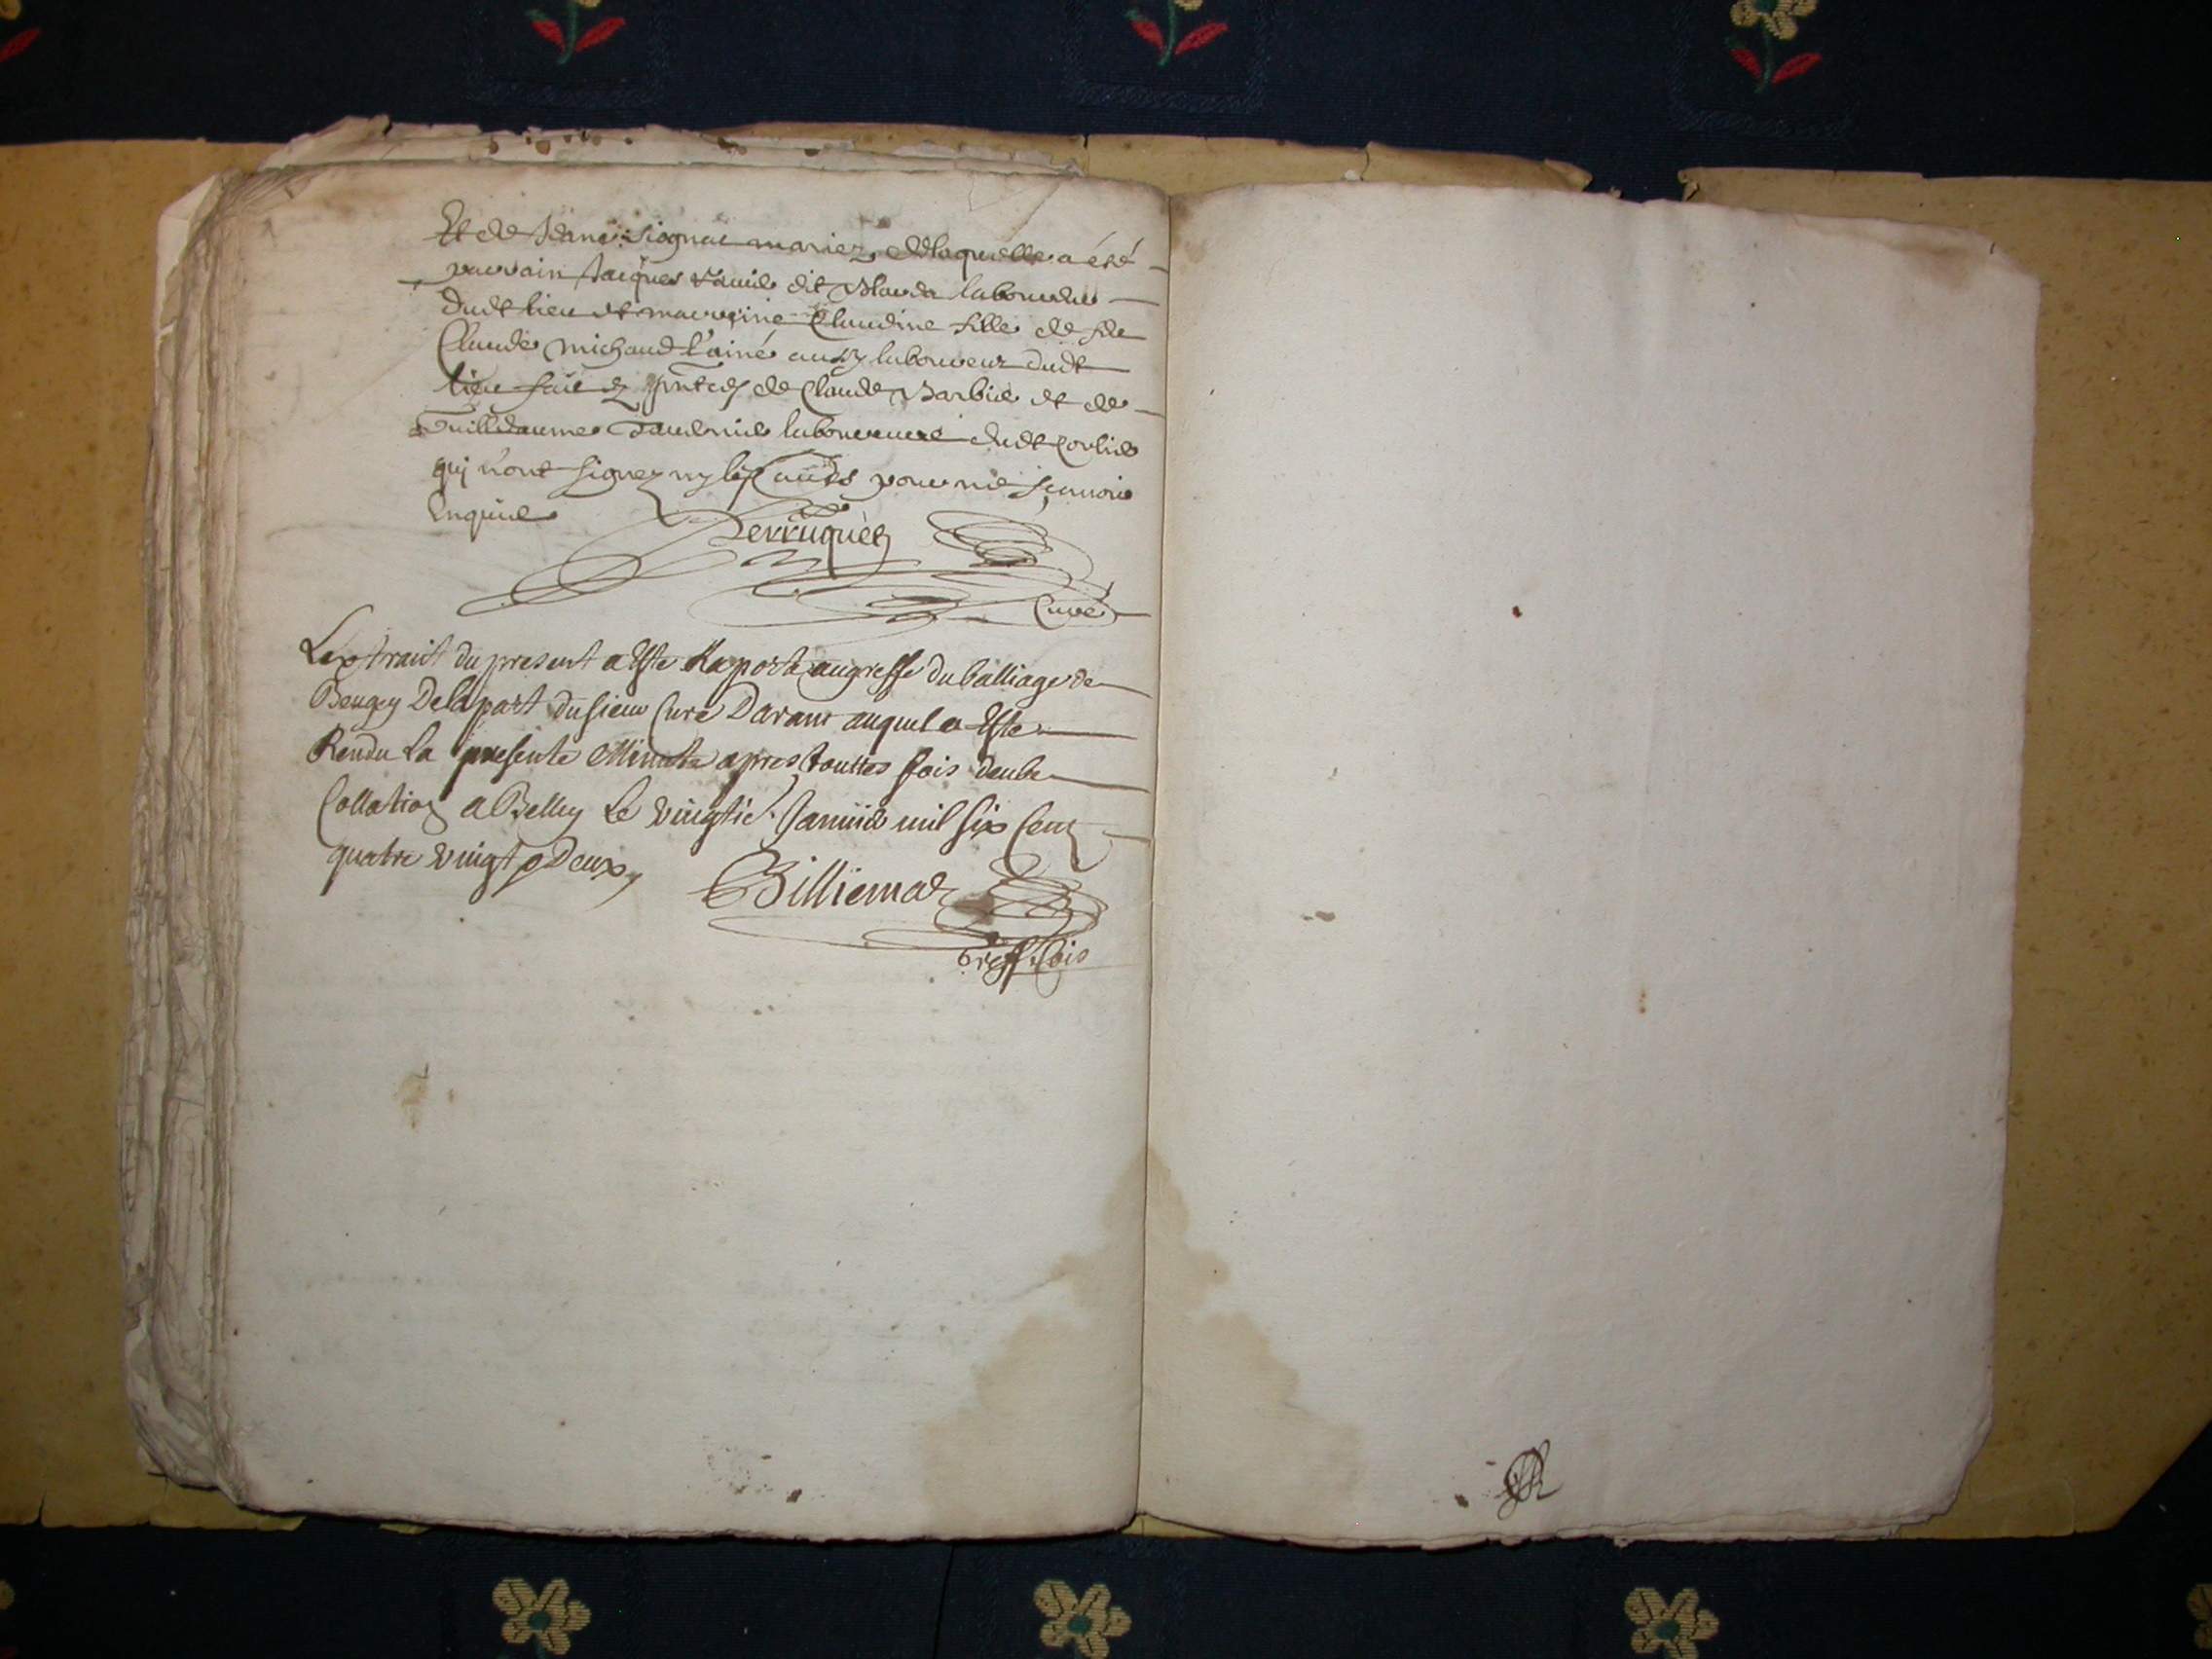 Et de Jeanne Siognat mariez, de laquelle a été
parrain Jacques dit laboureur
dudt lieu et marrine Claudine fille de
Claude Michaud l'ainé aussy laboureur dudt
lieu fait ez pntces de Claude Barbier et de
Guilliaume laboureurs dudt
qui n'ont signez ny les pour ne sçauoir
Enquis
Perruquet
Curé
Lextrait du present a Este Raporté au greffe du balliage de
Beugey De la part du sieur Curé Darant auquel a Este
Rendu La presente Minutte apres touttes fois deube
Collation a Belley Le vingtie Januier mil six Cent
quatre vingt Deux
Billiemaz
Greff